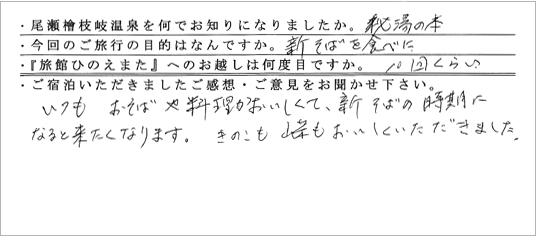 ・尾瀬檜枝岐温泉を何でお知りになりましたか。秘湯の本
・今回のご旅行の目的はなんですか。新そばを食べに
・『旅館ひのえまた』へのお越しは何度目ですか。10回くらい
・ご宿泊いただきましたご感想・ご意見をお聞かせ下さい。
いつも おそばや料理がおいしくて、新そばの時期に
なると来たくなります。 きのこも 山菜もおいしくいただきました。